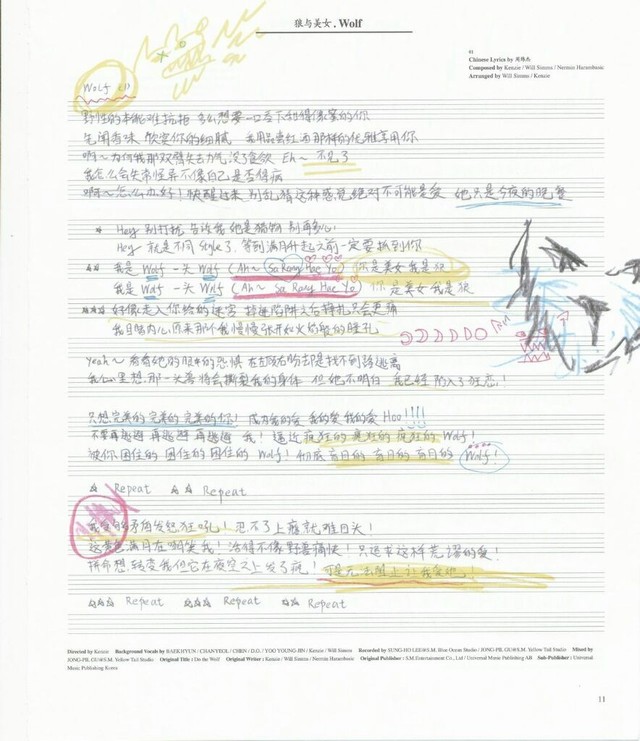 狼与美女. Wolf
01
Chinese Lyrics by 周炜杰
Composed by Kenzie / Will Simms / Nermin Harambasic
Arranged by Will Simms / Kenzie
Wolf
野性的本能难抗拒 多么想要一口吞下剥得像案的你
先闻香味 欣赏你的细腻 我用品尝红酒那样的优雅享用你
啊~为何我那双臂失去力气 没了食欲 Eh~ 不见了
我怎么会失常怪异 不像自己 是否得病
啊~怎么办好! 快醒过来 别乱猜 这种感觉绝对不可能是爱 她只是今夜的晚餐
Hey 别打扰 告诉我她是猎物 别再多心
Hey 就是不同 Style了, 等到满月升起之前一定要抓到你
我是 Wolf 一头 Wolf (Ah~ Sa Rang Hae Yo) 你是美女我是狼
我是 Wolf 一头 Wolf (Ah~ Sa Rang Hae Yo) 你是美女我是狼
好像走入你给的迷宫 掉进陷阱之后挣扎只会更痛
我
yeah~ 看着她的眼中的恐惧 在左顾右盼却是找不到路逃离
我心里想, 那一头兽将会撕裂我的身体 但她不明白 我已经陷入了狂恋!
只想完美的 完美的 完美的你! 成为我的爱 我的爱 我的爱 Hoo!!!
不要再逃避 再逃避 再逃避 我! 逼近 疯狂的 疯狂的 疯狂的 Wolf!
被你困住的 困住的 困住的 Wolf! 彻底 盲目的 盲目的 盲目的 Wolf!
Repeat Repeat
发怒狂吼! 忍不了上瘾就难回头!
这黄色满月在嘲笑我! 冷情不像野兽痛快! 只追求这样荒谬的爱!
拼命想, 转变我但它在夜空之上发了疯!
Repeat Repeat Repeat
Directed by Kenzie Background Vocals by BAEKHYUN / CHANYEOL / CHEN / D.O. / YOO YOUNG-JIN / Kenzie / Will Simms Recorded by SUNG-HO LEE@S.M. Blue Ocean Studio / JONG-PIL GU@S.M. Yellow Tail Studio Mixed by
JONG-PIL GU@S.M. Yellow Tail Studio Original Title : Do the Wolf Original Writer : Kenzie / Will Simms / Nermin Harambasic Original Publisher : S.M.Entertainment Co., Ltd / Universal Music Publishing AB Sub-Publisher : Universal
Music Publishing Korea
11